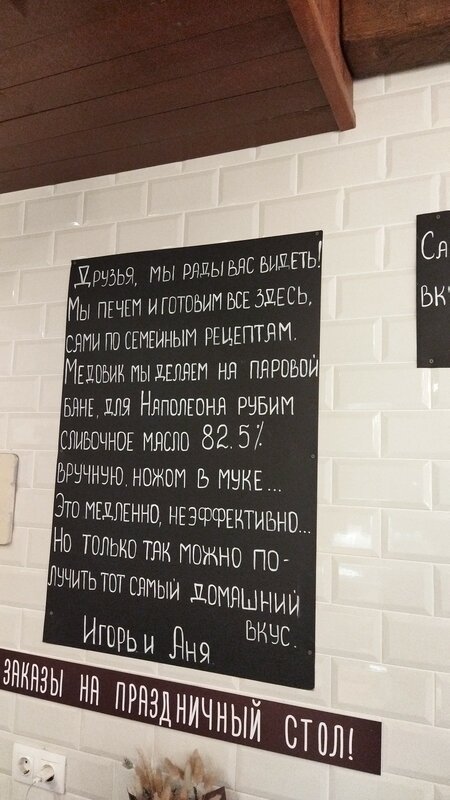 Друзья, мы рады вас видеть!
Мы печем и готовим все здесь,
сами по семейным рецептам.
Медовик мы делаем на паровой
бане, для Наполеона рубим
сливочное масло 82.5%
вручную, ножом в муке...
Это медленно, неэффективно...
Но только так можно по-
лучить тот самый домашний
вкус.
Игорь и Аня
заказы на праздничный стол!